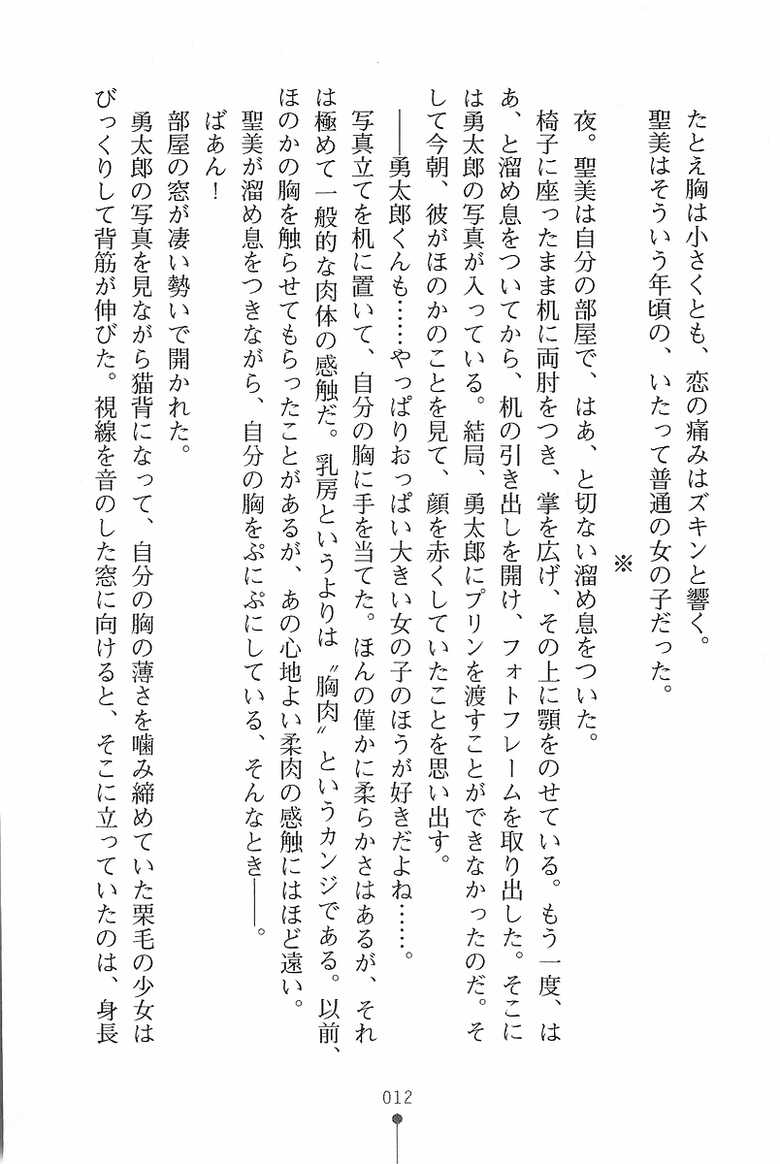 たとえ胸は小さくとも、恋の痛みはズキンと響く。
聖美はそういう年頃の、いたって普通の女の子だった。
※
夜。聖美は自分の部屋で、はあ、と切ない溜め息をついた。
椅子に座ったまま机に両肘をつき、掌を広げ、その上に顎をのせている。もう一度、は
あ、と溜め息をついてから、机の引き出しを開け、フォトフレームを取り出した。そこに
は勇太郎の写真が入っている。結局、勇太郎にプリンを渡すことができなかったのだ。そ
して今朝、彼がほのかのことを見て、顔を赤くしていたことを思い出す。
――勇太郎くんも……やっぱりおっぱい大きい女の子のほうが好きだよね……。
写真立てを机に置いて、自分の胸に手を当てた。ほんの僅かに柔らかさはあるが、それ
は極めて一般的な肉体の感触だ。乳房というよりは〝胸肉〟というカンジである。以前、
ほのかの胸を触らせてもらったことがあるが、あの心地よい柔肉の感触にはほど遠い。
聖美が溜め息をつきながら、自分の胸をぷにぷにしている、そんなとき――。
ばあん！
部屋の窓が凄い勢いで開かれた。
勇太郎の写真を見ながら猫背になって、自分の胸の薄さを噛み締めていた栗毛の少女は
びっくりして背筋が伸びた。視線を音のした窓に向けると、そこに立っていたのは、身長
012